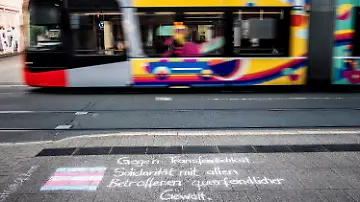 Gegen Transfeindlichkeit.
Solidarität mit allen
Betroffenen queerfeindlicher
Gewalt.